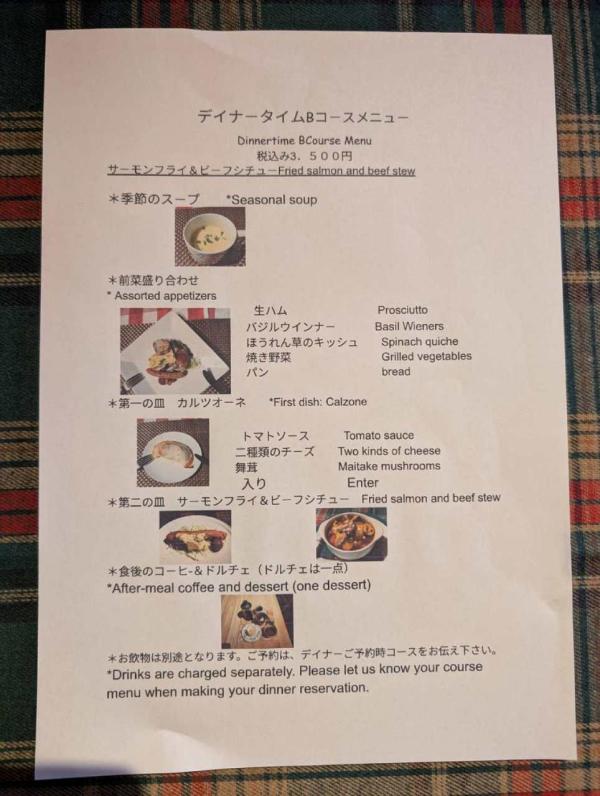 デイナータイムBコースメニュー
Dinnertime BCourse Menu
税込み3．５００円
サーモンフライ＆ビーフシチューFried salmon and beef stew
＊季節のスープ *Seasonal soup
＊前菜盛り合わせ
* Assorted appetizers
生ハム Prosciutto
バジルウインナー Basil Wieners
ほうれん草のキッシュ Spinach quiche
焼き野菜 Grilled vegetables
パン bread
＊第一の皿 カルツオーネ *First dish: Calzone
トマトソース Tomato sauce
二種類のチーズ Two kinds of cheese
舞茸 Maitake mushrooms
入り Enter
＊第二の皿 サーモンフライ＆ビーフシチュー Fried salmon and beef stew
＊食後のコーヒ-＆ドルチェ（ドルチェは一点）
*After-meal coffee and dessert (one dessert)
＊お飲物は別途となります。ご予約は、デイナーご予約時コースをお伝え下さい。
*Drinks are charged separately. Please let us know your course
menu when making your dinner reservation.